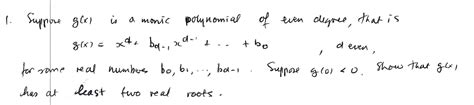 1. Suppose g(x) is a monic polynomial of even degree, that is
g(x) = x^d + b_{d-1} x^{d-1} + ... + b_0 , d even,
for some real numbers b_0, b_1, ..., b_{d-1}. Suppose g(0) < 0. Show that g(x)
has at least two real roots.